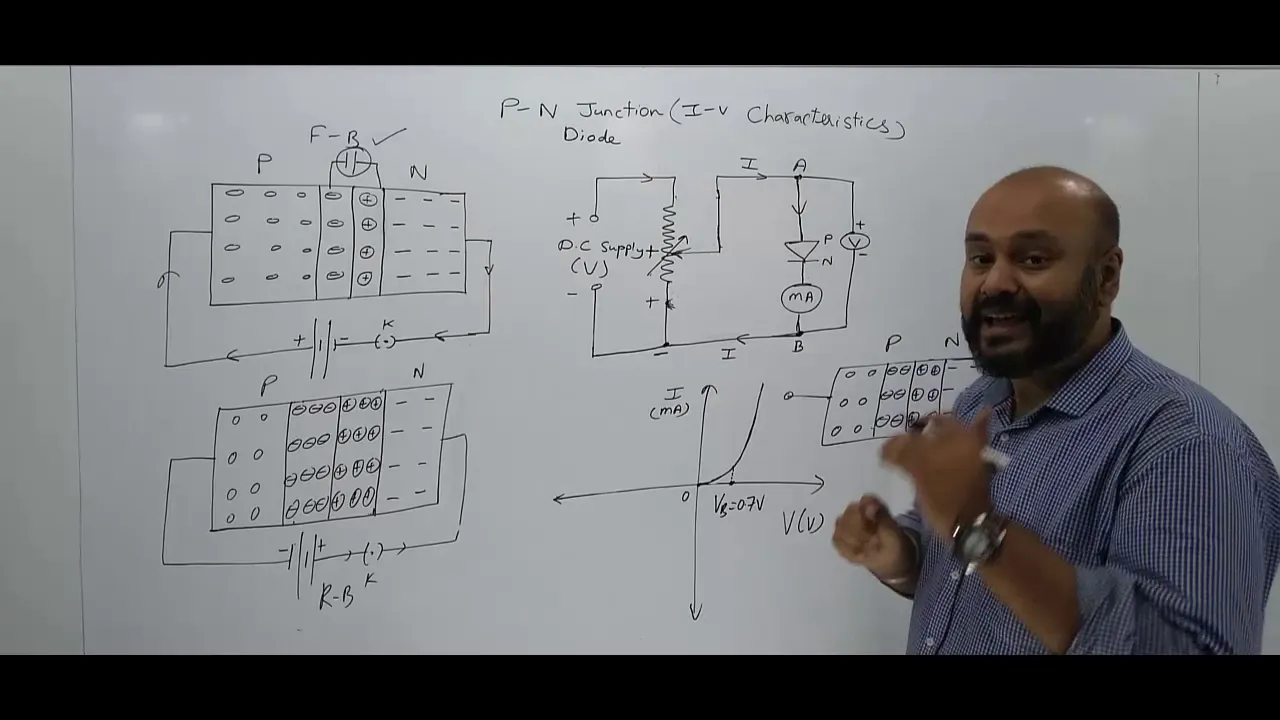 P-N Junction (I-V Characteristics)
Diode
F-B
P
N
+
-
K
P
N
-
+
K
R-B
I
A
+
D.C Supply
(V)
-
+
+
-
P
N
+
V
-
mA
I
B
I
(mA)
0
VB=0.7V
V(V)
P
N